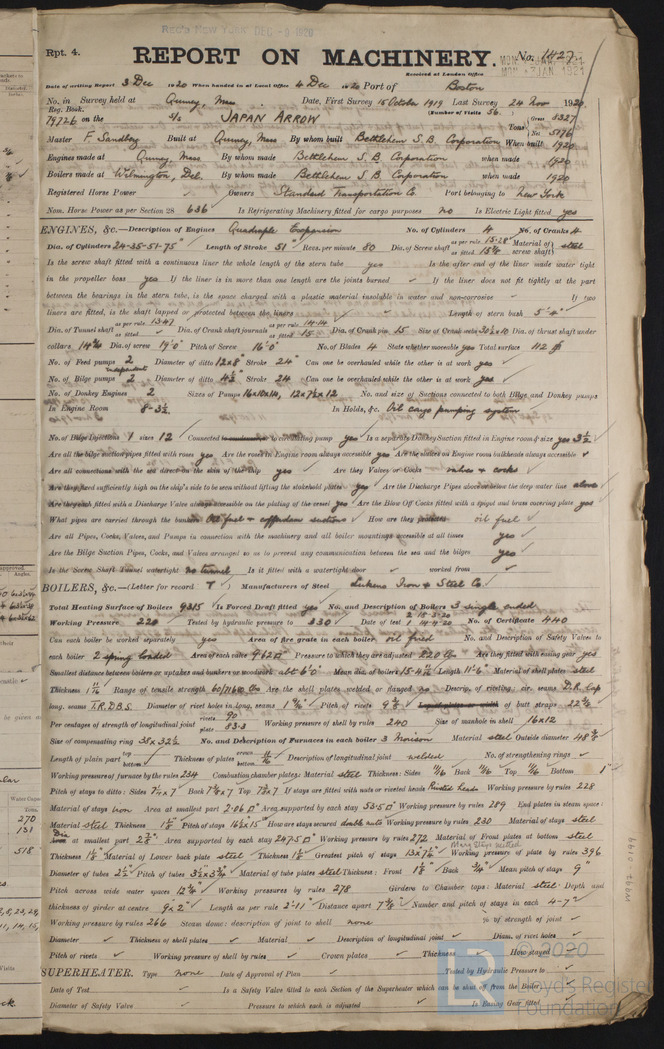 Rec'd NEW YORK DEC - 9 1920
Rpt. 4.
REPORT ON MACHINERY.
No. 1427
MON. 3 JAN. 1921
Received at London Office
Date of writing Report 3 Dec 1920 When handed in at Local Office 4 Dec 1920 Port of Boston
No. in Survey held at Quincy, Mass. Date, First Survey 15 October 1919 Last Survey 24 Nov 1920
Reg. Book. (Number of Visits 56.)
79726 on the S/S JAPAN ARROW Tons Gross 8327 Net 5176
Master F. Sandberg Built at Quincy, Mass By whom built Bethlehem S. B. Corporation When built 1920
Engines made at Quincy, Mass By whom made Bethlehem S. B. Corporation when made 1920
Boilers made at Wilmington, Del. By whom made Bethlehem S. B. Corporation when made 1920
Registered Horse Power Owners Standard Transportation Co. Port belonging to New York
Nom. Horse Power as per Section 28 636 Is Refrigerating Machinery fitted for cargo purposes no Is Electric Light fitted yes
ENGINES, &c.—Description of Engines Quadruple Expansion No. of Cylinders 4 No. of Cranks 4
Dia. of Cylinders 24-35-51-75" Length of Stroke 51 Revs. per minute 80 Dia. of Screw shaft as per rule 15.28 as fitted 15 3/4 Material of screw shaft steel
Is the screw shaft fitted with a continuous liner the whole length of the stern tube yes Is the after end of the liner made water tight
in the propeller boss yes If the liner is in more than one length are the joints burned ✓ If the liner does not fit tightly at the part
between the bearings in the stern tube, is the space charged with a plastic material insoluble in water and non-corrosive ✓ If two
liners are fitted, is the shaft lapped or protected between the liners ✓ Length of stern bush 5'-4"
Dia. of Tunnel shaft as per rule 13.47 as fitted ✓ Dia. of Crank shaft journals as per rule 14.14 as fitted 15 Dia. of Crank pin 15 Size of Crank webs 30½x10 Dia. of thrust shaft under
collars 14 7/8 Dia. of screw 19'0" Pitch of Screw 16'0" No. of Blades 4 State whether moveable yes Total surface 112
No. of Feed pumps 2 independent Diameter of ditto 12x8" Stroke 24" Can one be overhauled while the other is at work yes
No. of Bilge pumps 2 Diameter of ditto 4½" Stroke 24 Can one be overhauled while the other is at work yes
No. of Donkey Engines 2 Sizes of Pumps 16x10x14, 12x7½x12 No. and size of Suctions connected to both Bilge and Donkey pumps
In Engine Room 8-3½ In Holds, &c. Oil cargo pumping system
No. of Bilge Injections 1 sizes 12 Connected to circulating pump yes Is a separate Donkey Suction fitted in Engine room & size yes 3½
Are all the bilge suction pipes fitted with roses yes Are the roses in Engine room always accessible yes Are the sluices on Engine room bulkheads always accessible ✓
Are all connections with the sea direct on the skin of the ship yes Are they Valves or Cocks valves & cocks
Are they fixed sufficiently high on the ship's side to be seen without lifting the stokehold plates yes Are the Discharge Pipes above or below the deep water line above
Are they each fitted with a Discharge Valve always accessible on the plating of the vessel yes Are the Blow Off Cocks fitted with a spigot and brass covering plate yes
What pipes are carried through the bunkers Oil fuel & cofferdam suctions How are they protected oil fuel
Are all Pipes, Cocks, Valves, and Pumps in connection with the machinery and all boiler mountings accessible at all times yes
Are the Bilge Suction Pipes, Cocks, and Valves arranged so as to prevent any communication between the sea and the bilges yes
Is the Screw Shaft Tunnel watertight no tunnel Is it fitted with a watertight door ✓ worked from ✓
BOILERS, &c.—(Letter for record T) Manufacturers of Steel Lukens Iron & Steel Co.
Total Heating Surface of Boilers 9315 Is Forced Draft fitted yes No. and Description of Boilers 3 single ended
Working Pressure 220 Tested by hydraulic pressure to 330 Date of test No. of Certificate 440
Can each boiler be worked separately yes Area of fire grate in each boiler oil fired No. and Description of Safety Valves to
each boiler 2 spring loaded Area of each valve 9.62 Pressure to which they are adjusted 220 lbs Are they fitted with easing gear yes
Smallest distance between boilers or uptakes and bunkers or woodwork abt 6'0" Mean dia. of boilers 15-4 Length 11'-6" Material of shell plates steel
Thickness Range of tensile strength Are the shell plates welded or flanged no Descrip. of riveting: cir. seams D.R. lap
long. seams T.R.D.B.S. Diameter of rivet holes in long. seams Pitch of rivets of butt straps 22½
Per centages of strength of longitudinal joint rivets 90 plate 83.3 Working pressure of shell by rules 240 Size of manhole in shell 16x12
Size of compensating ring 35x32½ No. and Description of Furnaces in each boiler 3 Morison Material steel Outside diameter 48
Length of plain part top bottom Thickness of plates crown bottom Description of longitudinal joint welded No. of strengthening rings ✓
Working pressure of furnace by the rules 234 Combustion chamber plates: Material steel Thickness: Sides 11/16 Back 11/16 Top 11/16 Bottom 1"
Pitch of stays to ditto: Sides Back Top If stays are fitted with nuts or riveted heads Riveted heads Working pressure by rules 228
Material of stays iron Area at smallest part 2.06 Area supported by each stay 53.5 Working pressure by rules 289 End plates in steam space:
Material steel Thickness 1⅛ Pitch of stays 16½x15 How are stays secured double nuts Working pressure by rules 230 Material of stays steel
Dia at smallest part 2⅞ Area supported by each stay 247.5 Working pressure by rules 272 Material of Front plates at bottom steel
Thickness 1⅛ Material of Lower back plate steel Thickness 1⅛ Greatest pitch of stays Working pressure of plate by rules 396
Diameter of tubes 2½ Pitch of tubes 3½x3¾ Material of tube plates steel Thickness: Front 1⅛ Back ¾ Mean pitch of stays 9"
Pitch across wide water spaces 12¾ Working pressures by rules 278 Girders to Chamber tops: Material steel Depth and
thickness of girder at centre 9x2" Length as per rule 2'-11" Distance apart 7¾ Number and pitch of stays in each 4-7"
Working pressure by rules 266 Steam dome: description of joint to shell none % of strength of joint ✓
Diameter ✓ Thickness of shell plates ✓ Material ✓ Description of longitudinal joint ✓ Diam. of rivet holes ✓
Pitch of rivets ✓ Working pressure of shell by rules ✓ Crown plates ✓ Thickness How stayed
SUPERHEATER. Type none Date of Approval of Plan Tested by Hydraulic Pressure to
Date of Test Is a Safety Valve fitted to each Section of the Superheater which can be shut off from the Boiler
Diameter of Safety Valve Pressure to which each is adjusted Is Easing Gear fitted
W992-0199
© 2020
Lloyd's Register
Foundation